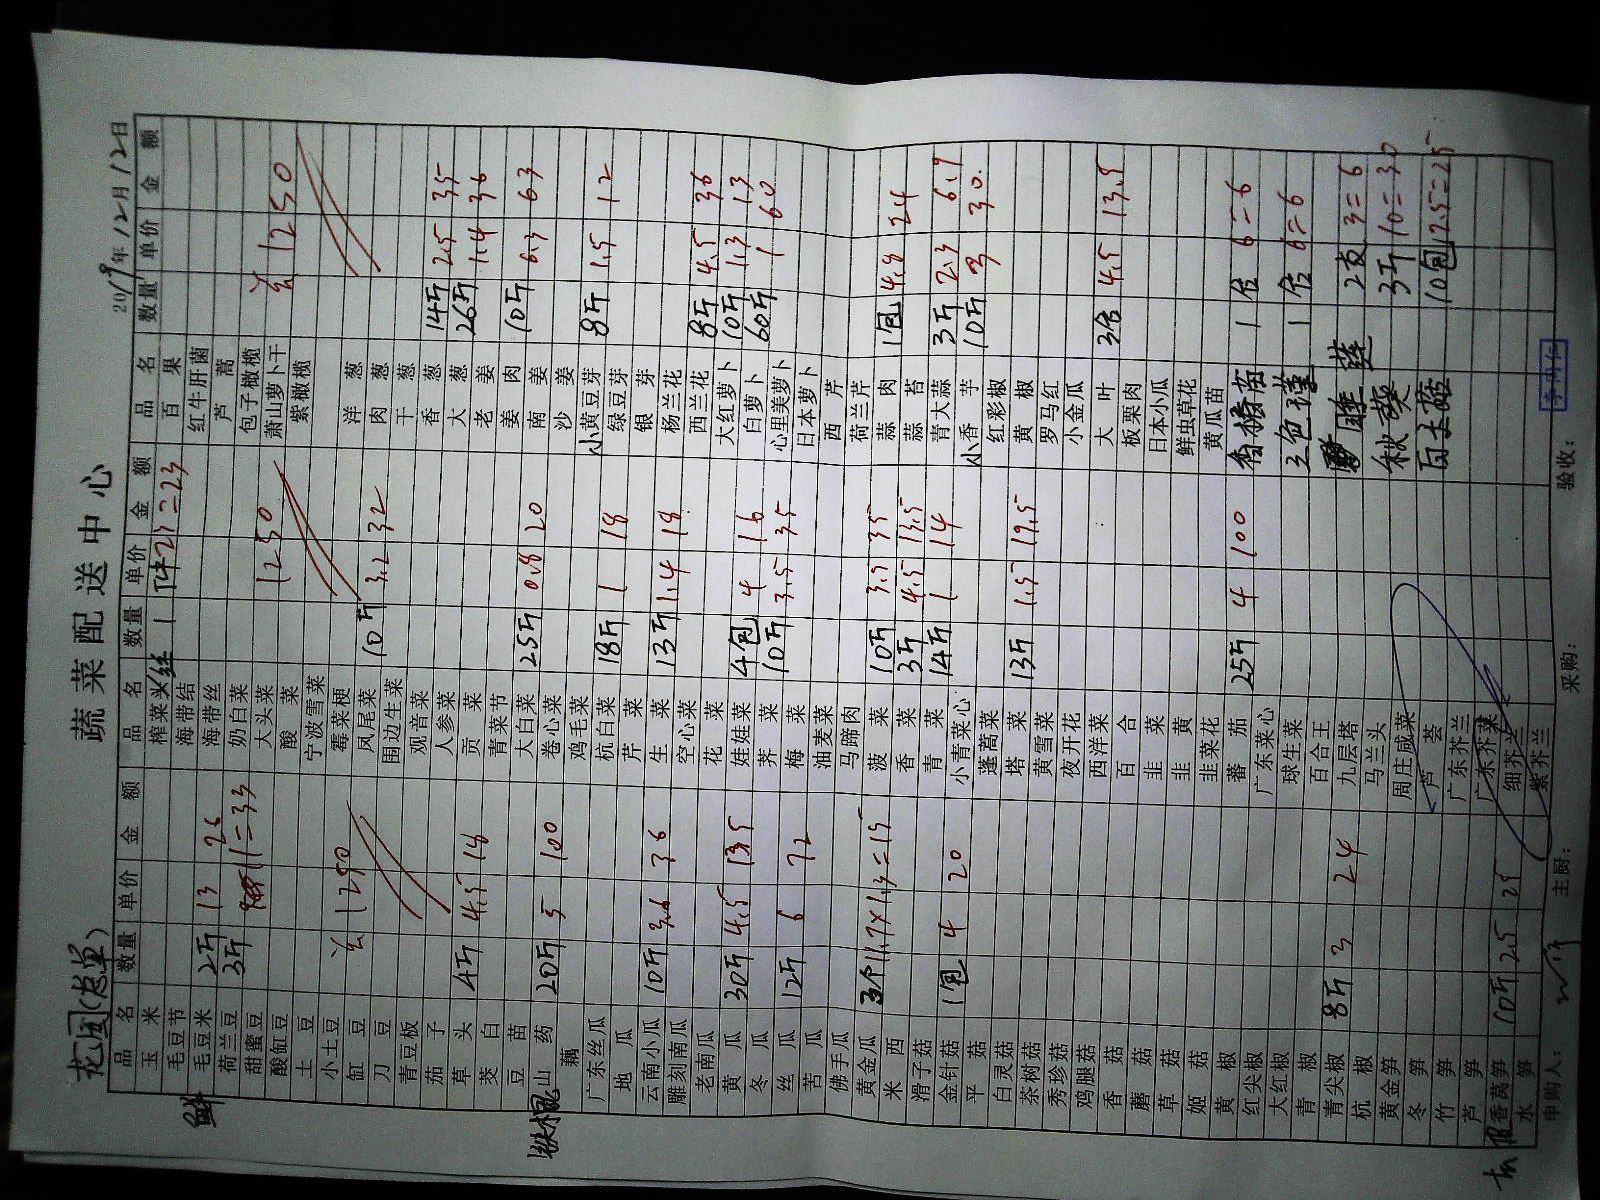 蔬菜配送中心
花园(总单)
2019年12月12日
品名 数量 单价 金额
玉米
毛豆节
鲜毛豆米 2斤 13 26
荷兰豆 3斤 11=33
甜蜜豆
酸缸豆
土豆
小土豆
缸豆
刀豆
青豆板
茄子
草头 4斤 4.5 18
茭白
豆苗
铁棍山药 20斤 5 100
藕
广东丝瓜
地瓜
云南小瓜 10斤 3.6 36
雕刻南瓜
老南瓜
黄瓜 30斤 4.5 135
冬瓜
丝瓜 12斤 6 72
苦瓜
佛手瓜
黄金瓜 3个 11.7×1.3=15
米西
滑子菇
金针菇 1包 4 20
平菇
白灵菇
茶树菇
秀珍菇
鸡腿菇
香菇
蘑菇
草菇
姬菇
黄椒
红尖椒
大红椒
青椒
青尖椒 8斤 3 24
杭椒
黄金笋
冬笋
竹笋
芦笋
香莴笋 10斤 2.5 25
水笋
品名 数量 单价 金额
榨菜头丝 1件 23=23
海带结
海带丝
奶白菜
大头菜 1250
酸菜
宁波雪菜
霉菜梗
凤尾菜 10斤 3.2 32
围边生菜
观音菜
人参菜
贡菜
青菜节
大白菜 25斤 0.8 20
卷心菜
鸡毛菜
杭白菜 18斤 1 18
芹菜
生菜 13斤 1.4 18
空心菜
花菜
娃娃菜 4包 4 16
荠菜 10斤 3.5 35
梅菜
油麦菜
马蹄肉
菠菜 10斤 3.5 35
香菜 3斤 4.5 13.5
青菜 14斤 1 14
小青菜心
蓬蒿菜
塔菜 13斤 1.5 19.5
黄雪菜
夜开花
西洋菜
百合
韭菜
韭黄
韭菜花
蕃茄 25斤 4 100
广东菜心
球生菜
百合王
九层塔
马兰头
周庄咸菜
芦荟
广东芥兰
广东芥菜
细芥兰
紫芥兰
品名 数量 单价 金额
百果
红牛肝菌
芦蒿
包子橄榄
萧山萝卜干 1250
紫橄榄
洋葱
肉葱
干葱
香葱 14斤 2.5 35
大葱 26斤 1.4 36
老姜
姜肉 10斤 6.3 63
南姜
沙姜
小黄豆芽 8斤 1.5 12
绿豆芽
银芽
杨兰花
西兰花 8斤 4.5 36
大红萝卜 10斤 1.3 13
白萝卜 60斤 1 60
心里美萝卜
日本萝卜
西芹
荷兰芹
蒜肉 1包 4.8 24
蒜苔
青大蒜 3斤 2.3 6.9
小香芋 10斤 3 30
红彩椒
黄椒
罗马红
小金瓜
大叶 3合 4.5 13.5
板栗肉
日本小瓜
鲜虫草花
黄瓜苗
1合 6=6
三色堇 1合 6=6
睡莲 2支 3=6
秋葵 3斤 10=30
白玉菇 10包 2.5=25
申购人： 主厨： 采购： 验收：